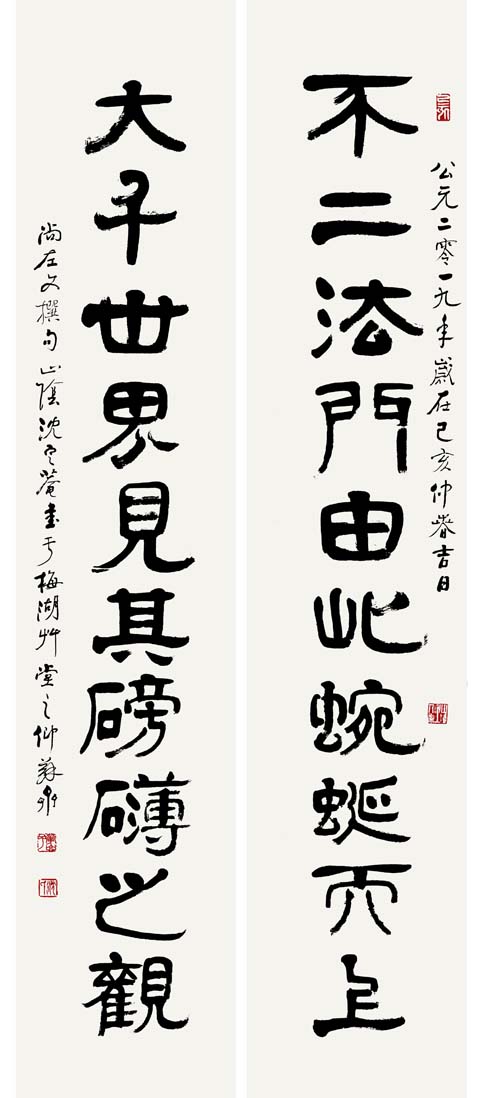 公元二零一九年歲在己亥仲春吉日
不二法門由此蜿蜒而上
大千世界見其磅礴之觀
尚左文撰句山陰沈定菴書于梅湖艸堂之仰蘇